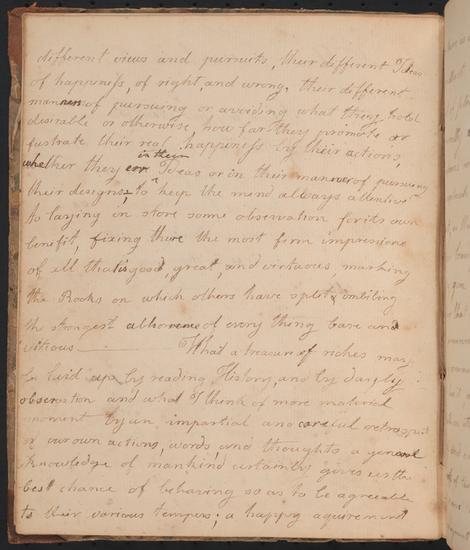 different views and pursuits, their different Ideas
of happiness, of right, and wrong, their different
manners of pursuing or avoiding what they hold
desirable or otherwise, how far they promote or
fustrate their real happiness by their actions,
in their
whether they err Ideas or in their manner of pursuing
their designs; to keep the mind always attentive
to laying in store some observation for its own
benefit, fixing there the most firm impressions
of all that is good, great, and virtuous, marking
the Rocks on which others have split &
the strongest abhorrence of every thing base and
vitious — What a treasure of riches may
be laid up by reading History, and by dayly
observation and what I think of more material
moment by an impartial and careful retrospect
of our own actions, words, and thoughts a general
knowledge of mankind certainly gives us the
best chance of behaving so as to be agreeable
to their various tempers; a happy aquirement